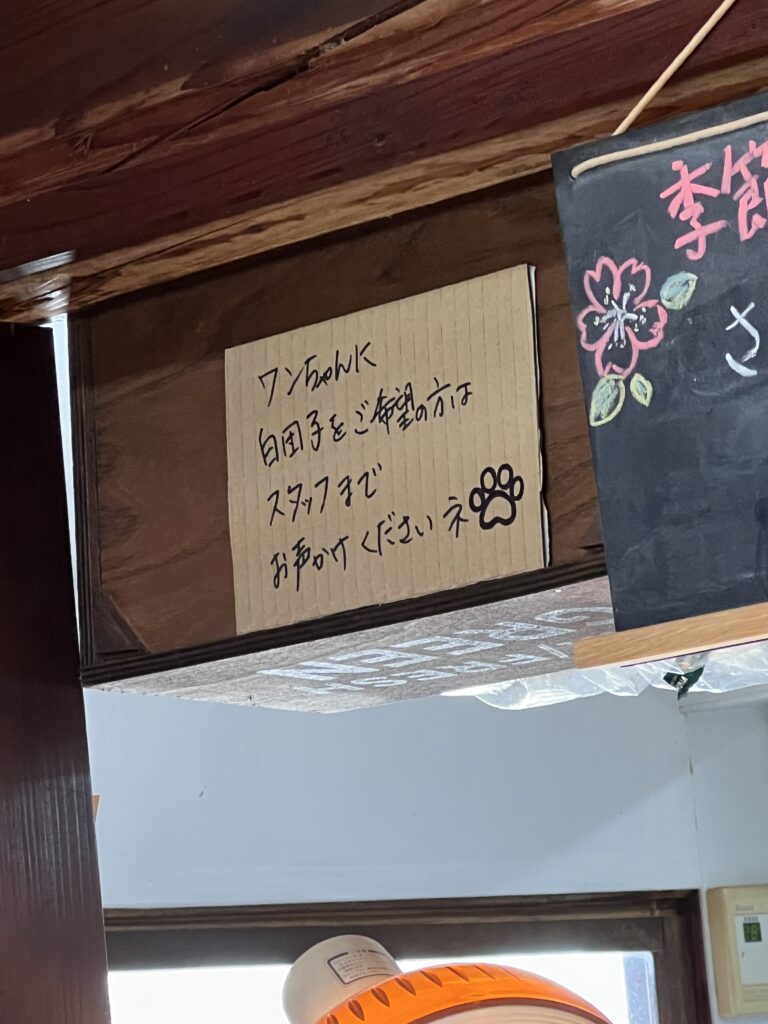 ワンちゃんに
白団子をご希望の方は
スタッフまで
お声かけくださいネ
季節
さ
FRESH
GREEN